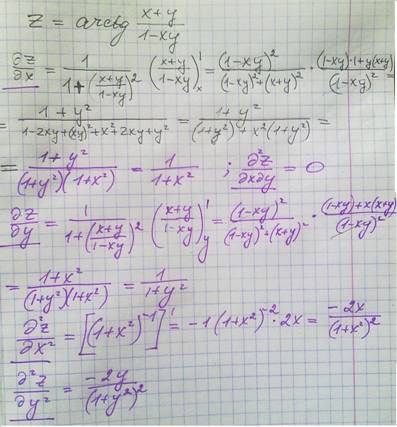 z = arctg (x+y)/(1-xy)
∂z/∂x = 1/(1+((x+y)/(1-xy))²) ((x+y)/(1-xy))'ₓ = (1-xy)²/((1-xy)²+(x+y)²) · ((1-xy)·1+y(x+y))/(1-xy)² =
= (1+y²)/(1-2xy+(xy)²+x²+2xy+y²) = (1+y²)/((1+y²)+x²(1+y²)) =
= (1+y²)/((1+y²)(1+x²)) = 1/(1+x²) ; ∂²z/∂x∂y = 0
∂z/∂y = 1/(1+((x+y)/(1-xy))²) ((x+y)/(1-xy))'y = (1-xy)²/((1-xy)²+(x+y)²) · ((1-xy)+x(x+y))/(1-xy)²
= (1+x²)/((1+y²)(1+x²)) = 1/(1+y²)
∂²z/∂x² = [(1+x²)⁻¹]' = -1(1+x²)⁻² · 2x = -2x/(1+x²)²
∂²z/∂y² = -2y/(1+y²)²